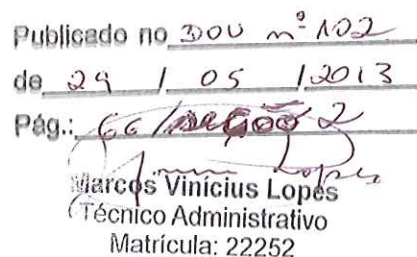 Publicado no DOU nº 102
de 29 / 05 / 2013
Pág.: 66 / 2
Marcos Vinícius Lopes
Técnico Administrativo
Matrícula: 22252